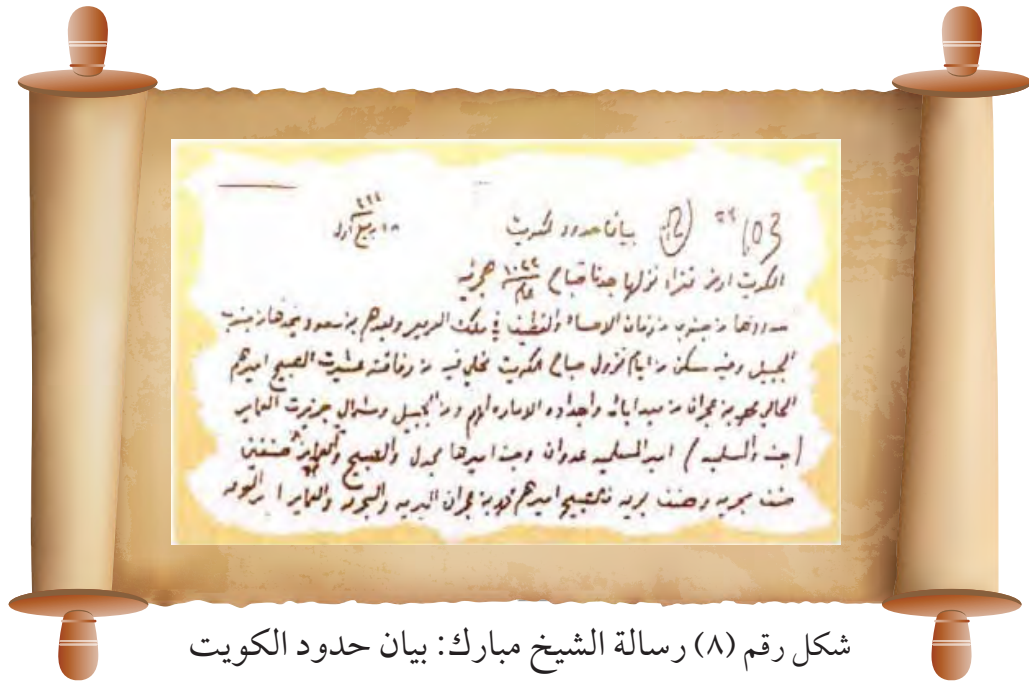 103 ٢٢ (12) بيان حدود الكويت ١٨ ربيع أول
الكويت ارض قفرا نزلها جدنا صباح عام ١٠٢٢ هجريه
حدودها من جنوب من زمان الاحساء والقطيف في ملك العريعر وبعدهم بن سعود يحدها من جنوب
الجبيل وفيه سكن من ايام نزول صباح الكويت من رفاقته عشيرت الصبيح اميرهم
الحالي بن عمران من ابائه واجداده الاماره لهم ومن الجبيل وشمال جزيرت العماير
(جنه والمسلميه) امير المسلميه عدوان وجنه اميرها مجدل والصبيح والعماير صنفين
صنف بحريه وصنف بريه فالصبيح اميرهم بن عمران البريه والبحريه والعماير
شكل رقم (٨) رسالة الشيخ مبارك: بيان حدود الكويت